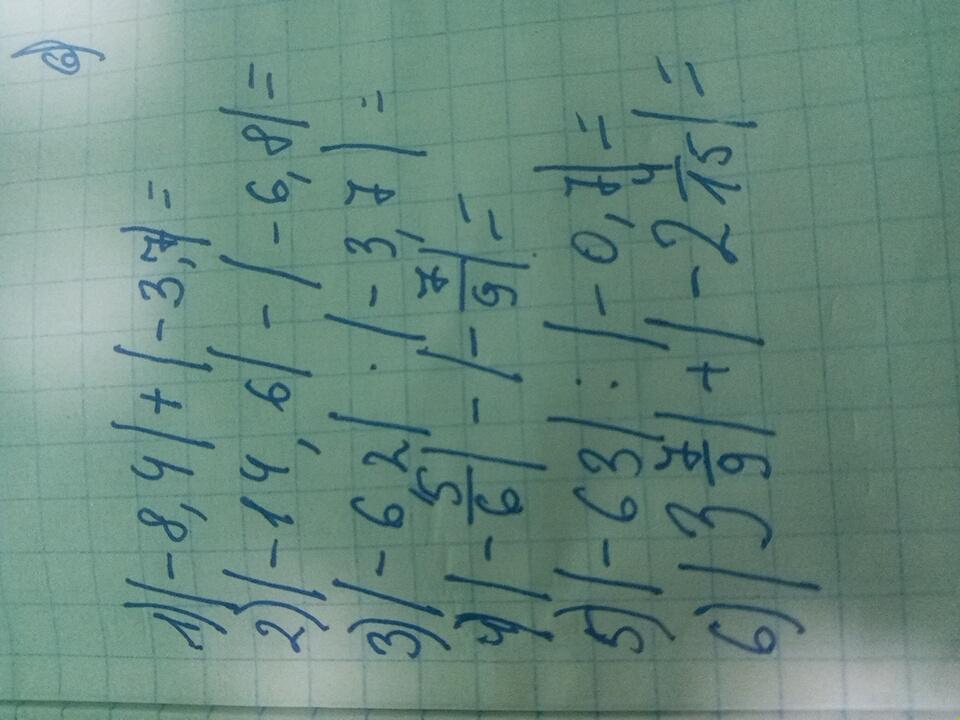 1) |-8,4|+|-3,7|=
2) |-14,6|-|-6,8|=
3) |-62|·|-3,7|=
4) |-5/6|-|-7/9|=
5) |-63|:|-0,7|=
6) |3 7/9|+|-2 4/15|=